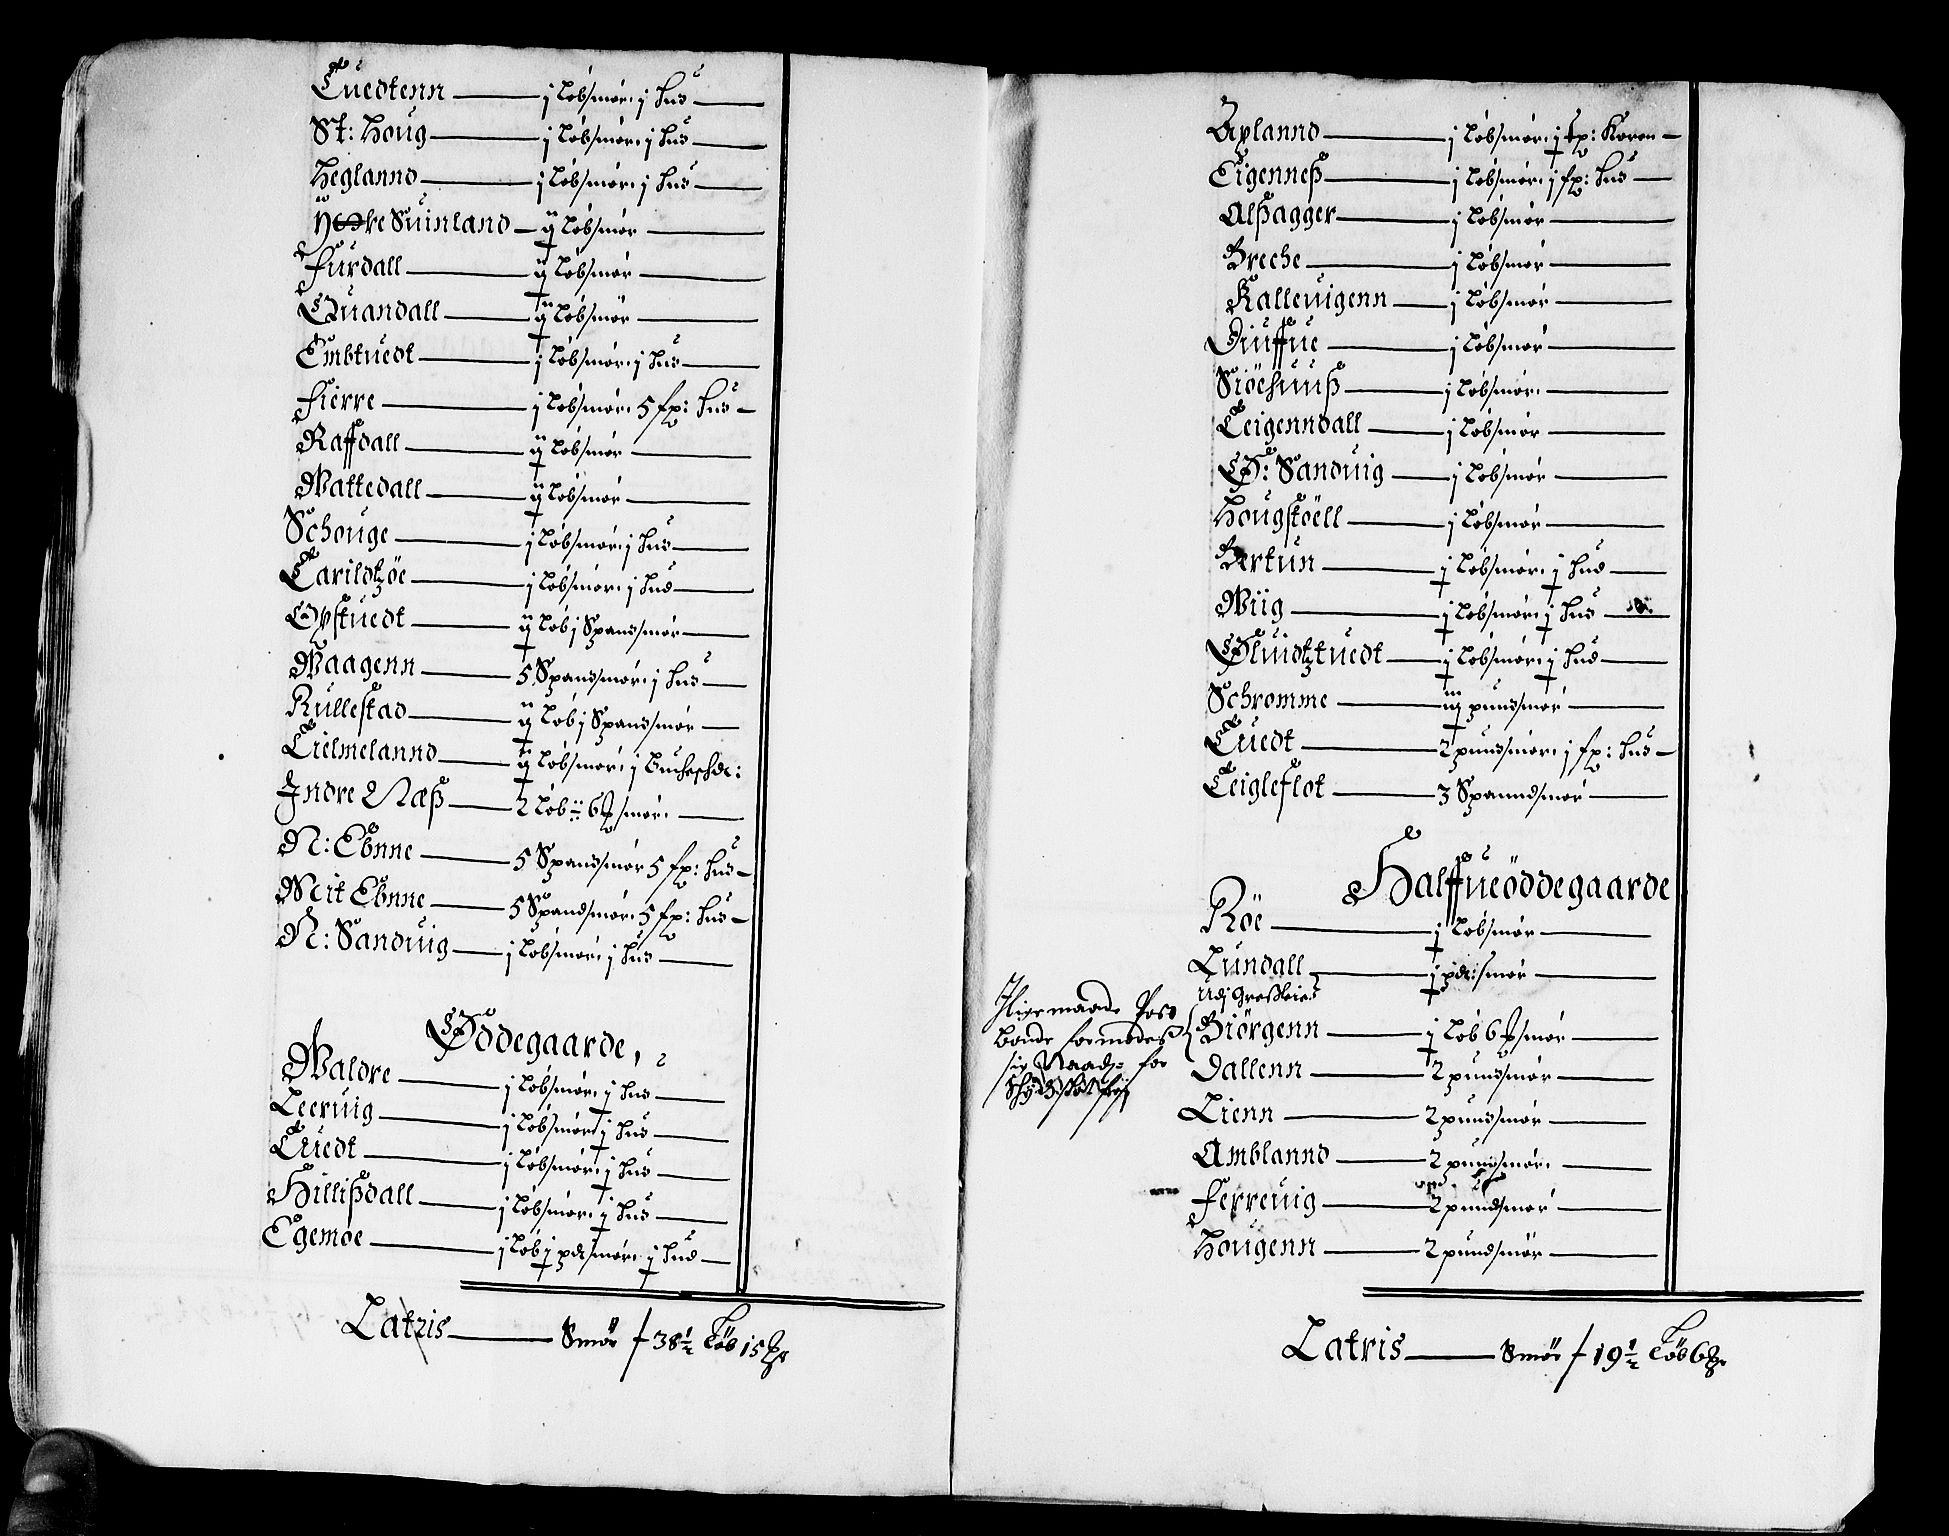 Tuedtenn — j Løbsmør: j Hud —
St: Houg — j Løbsmør: j Hud —
Heglannd — j Løbsmør: j Hud —
Suinland — ij Løbsmør —
Furdall — ij Løbsmør —
Quandall — ij Løbsmør —
Embtuedt — j Løbsmør: j Hud —
Fierre — j Løbsmør: 5 sp: Hud —
Raffdall — ij Løbsmør —
Wattedall — ij Løbsmør —
Schouge — j Løbsmør: j Hud —
Tarildtzøe — j Løbsmør: j Hud —
Opstuedt — ij Løb j Spandsmør —
Waagenn — 5 Spandsmør: j Hud —
Rullestad — ij Løb j Spandsmør —
Tielmelannd — ij Løbsmør: j
Indre Næß — 2 Løb 6 smør: —
N: Ebnne — 5 Spandsmør 5 sp: Hud —
Mit Ebnne — 5 Spandsmør: 5 sp: Hud —
N: Sanduig — j Løbsmør: j Hud —
Ødegaarde,
Waldre — j Løbsmør: j Hud —
Leeruig — j Løbsmør j Hud —
Tuedt — j Løbsmør: j Hud —
Hillißdall — j Løbsmør: j Hud —
Egemoe — j Løb j pdsmør: j Hud —
Latris — Smør / 38 1/2 Løb 15
Aplannd — j Løbsmør: j sp: Koren —
Eigenneß — j Løbsmør: j sp: Hud —
Alßagger — j Løbsmør —
Breche — j Løbsmør —
Kalleuigenn — j Løbsmør —
Diuffue — j Løbsmør —
Siøehuuß — j Løbsmør: —
Teigenndall — j Løbsmør —
Ø: Sanduig — j Løbsmør —
Hougstøell — j Løbsmør —
Bertun — j Løbsmør: j Hud —
Wiig — j Løbsmør: j Hud —
Øluidtztuedt — j Løbsmør: j Hud —
Schromme — iij pundsmør —
Tuedt — 2 pundsmør: j sp: Hud —
Teigleflot — 3 Spanndsmør —
Halffueøddegaarde
Røe — j Løbsmør —
Lundall — j pd: smør —
Udj Græßleie
Biørgenn — j Løb 6 smør —
Dallenn — 2 pundsmør —
Lienn — 2 pundsmør —
Amblannd — 2 pundsmør: —
Ferreuig — 2 pundsmør —
Hougenn — 2 pundsmør —
Ligemaade Post
bonde formedelst
sin Naadz: for
Latris — Smør / 19 1/2 Løb 6